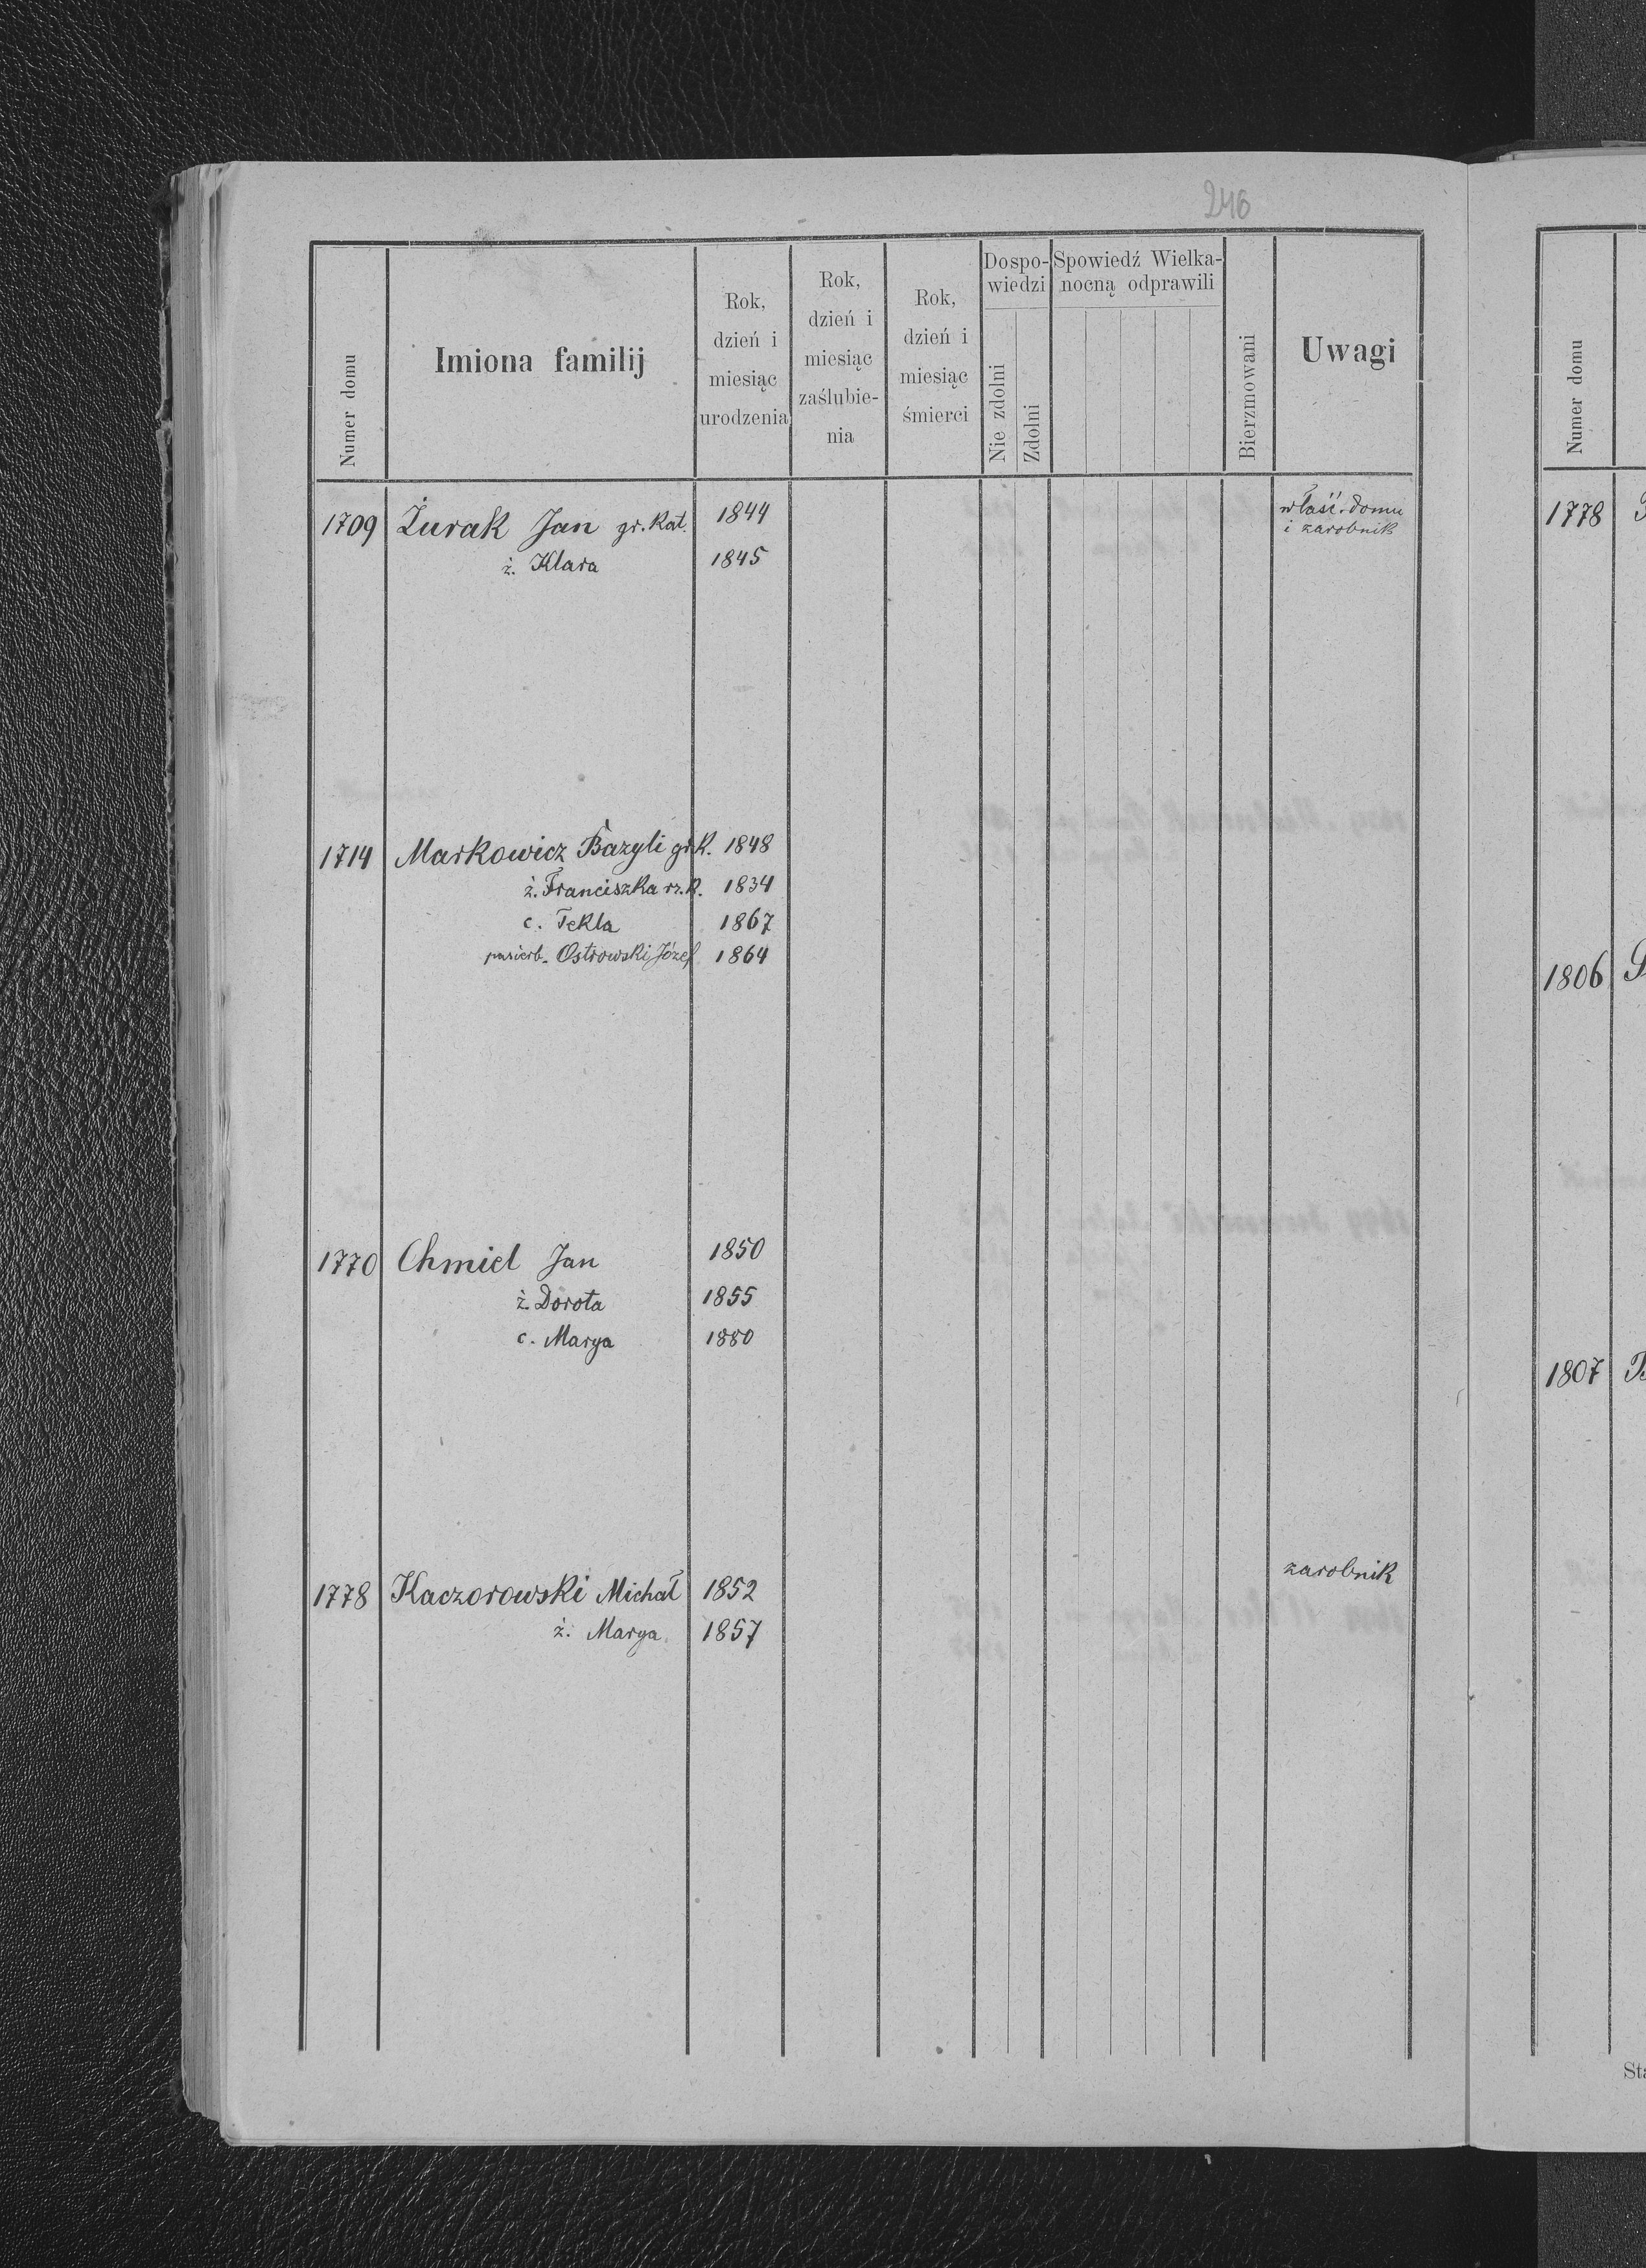 246
Numer domu
Imiona familij
Rok, dzień i miesiąc urodzenia
Rok, dzień i miesiąc zaślubie-nia
Rok, dzień i miesiąc śmierci
Dospo-wiedzi
Nie zdolni
Zdolni
Spowiedź Wielka-nocną odprawili
Bierzmowani
Uwagi
1709 Żurak Jan gr. kat. 1844 właśc. domu
i zarobnik
ż. Klara 1845
1714 Markowicz Bazyli gr.k. 1848
ż. Franciszka rz.k. 1834
c. Tekla 1867
pasierb. Ostrowski Józef 1864
1770 Chmiel Jan 1850
ż. Dorota 1855
c. Marya 1880
1778 Kaczorowski Michał 1852 zarobnik
ż. Marya 1857
Numer domu
1778
1806
1807